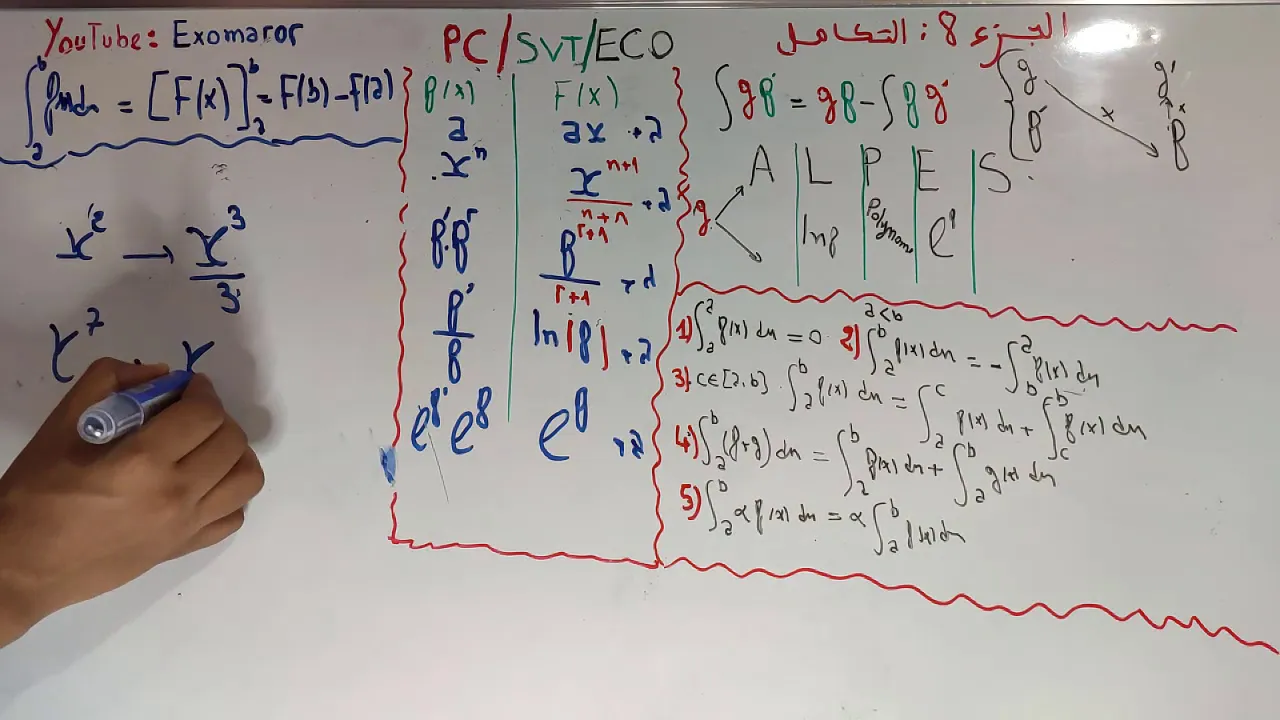 YouTube: Exomaror
PC/SVT/ECO
الجزء 8: التكامل
∫_a^b f(x)dx = [F(x)]_a^b = F(b) - f(a)
x² → x³/3
x⁷ → x
f(x) F(x)
a ax + λ
x^n x^(n+1)/(n+n) + λ
f'·f^r f^(r+1)/(r+1) + λ
f'/f ln|f| + λ
e^f' e^f e^f + λ
∫gf' = gf - ∫fg'
g g'
f' f
A | L | P | E | S
g lnf Polynome e^f
1) ∫_a^a f(x) dx = 0 2) a<b ∫_a^b f(x) dx = -∫_b^a f(x) dx
3) c∈[a,b] ∫_a^b f(x) dx = ∫_a^c f(x) dx + ∫_c^b f(x) dx
4) ∫_a^b (f+g) dx = ∫_a^b f(x) dx + ∫_a^b g(x) dx
5) ∫_a^b α f(x) dx = α ∫_a^b f(x) dx